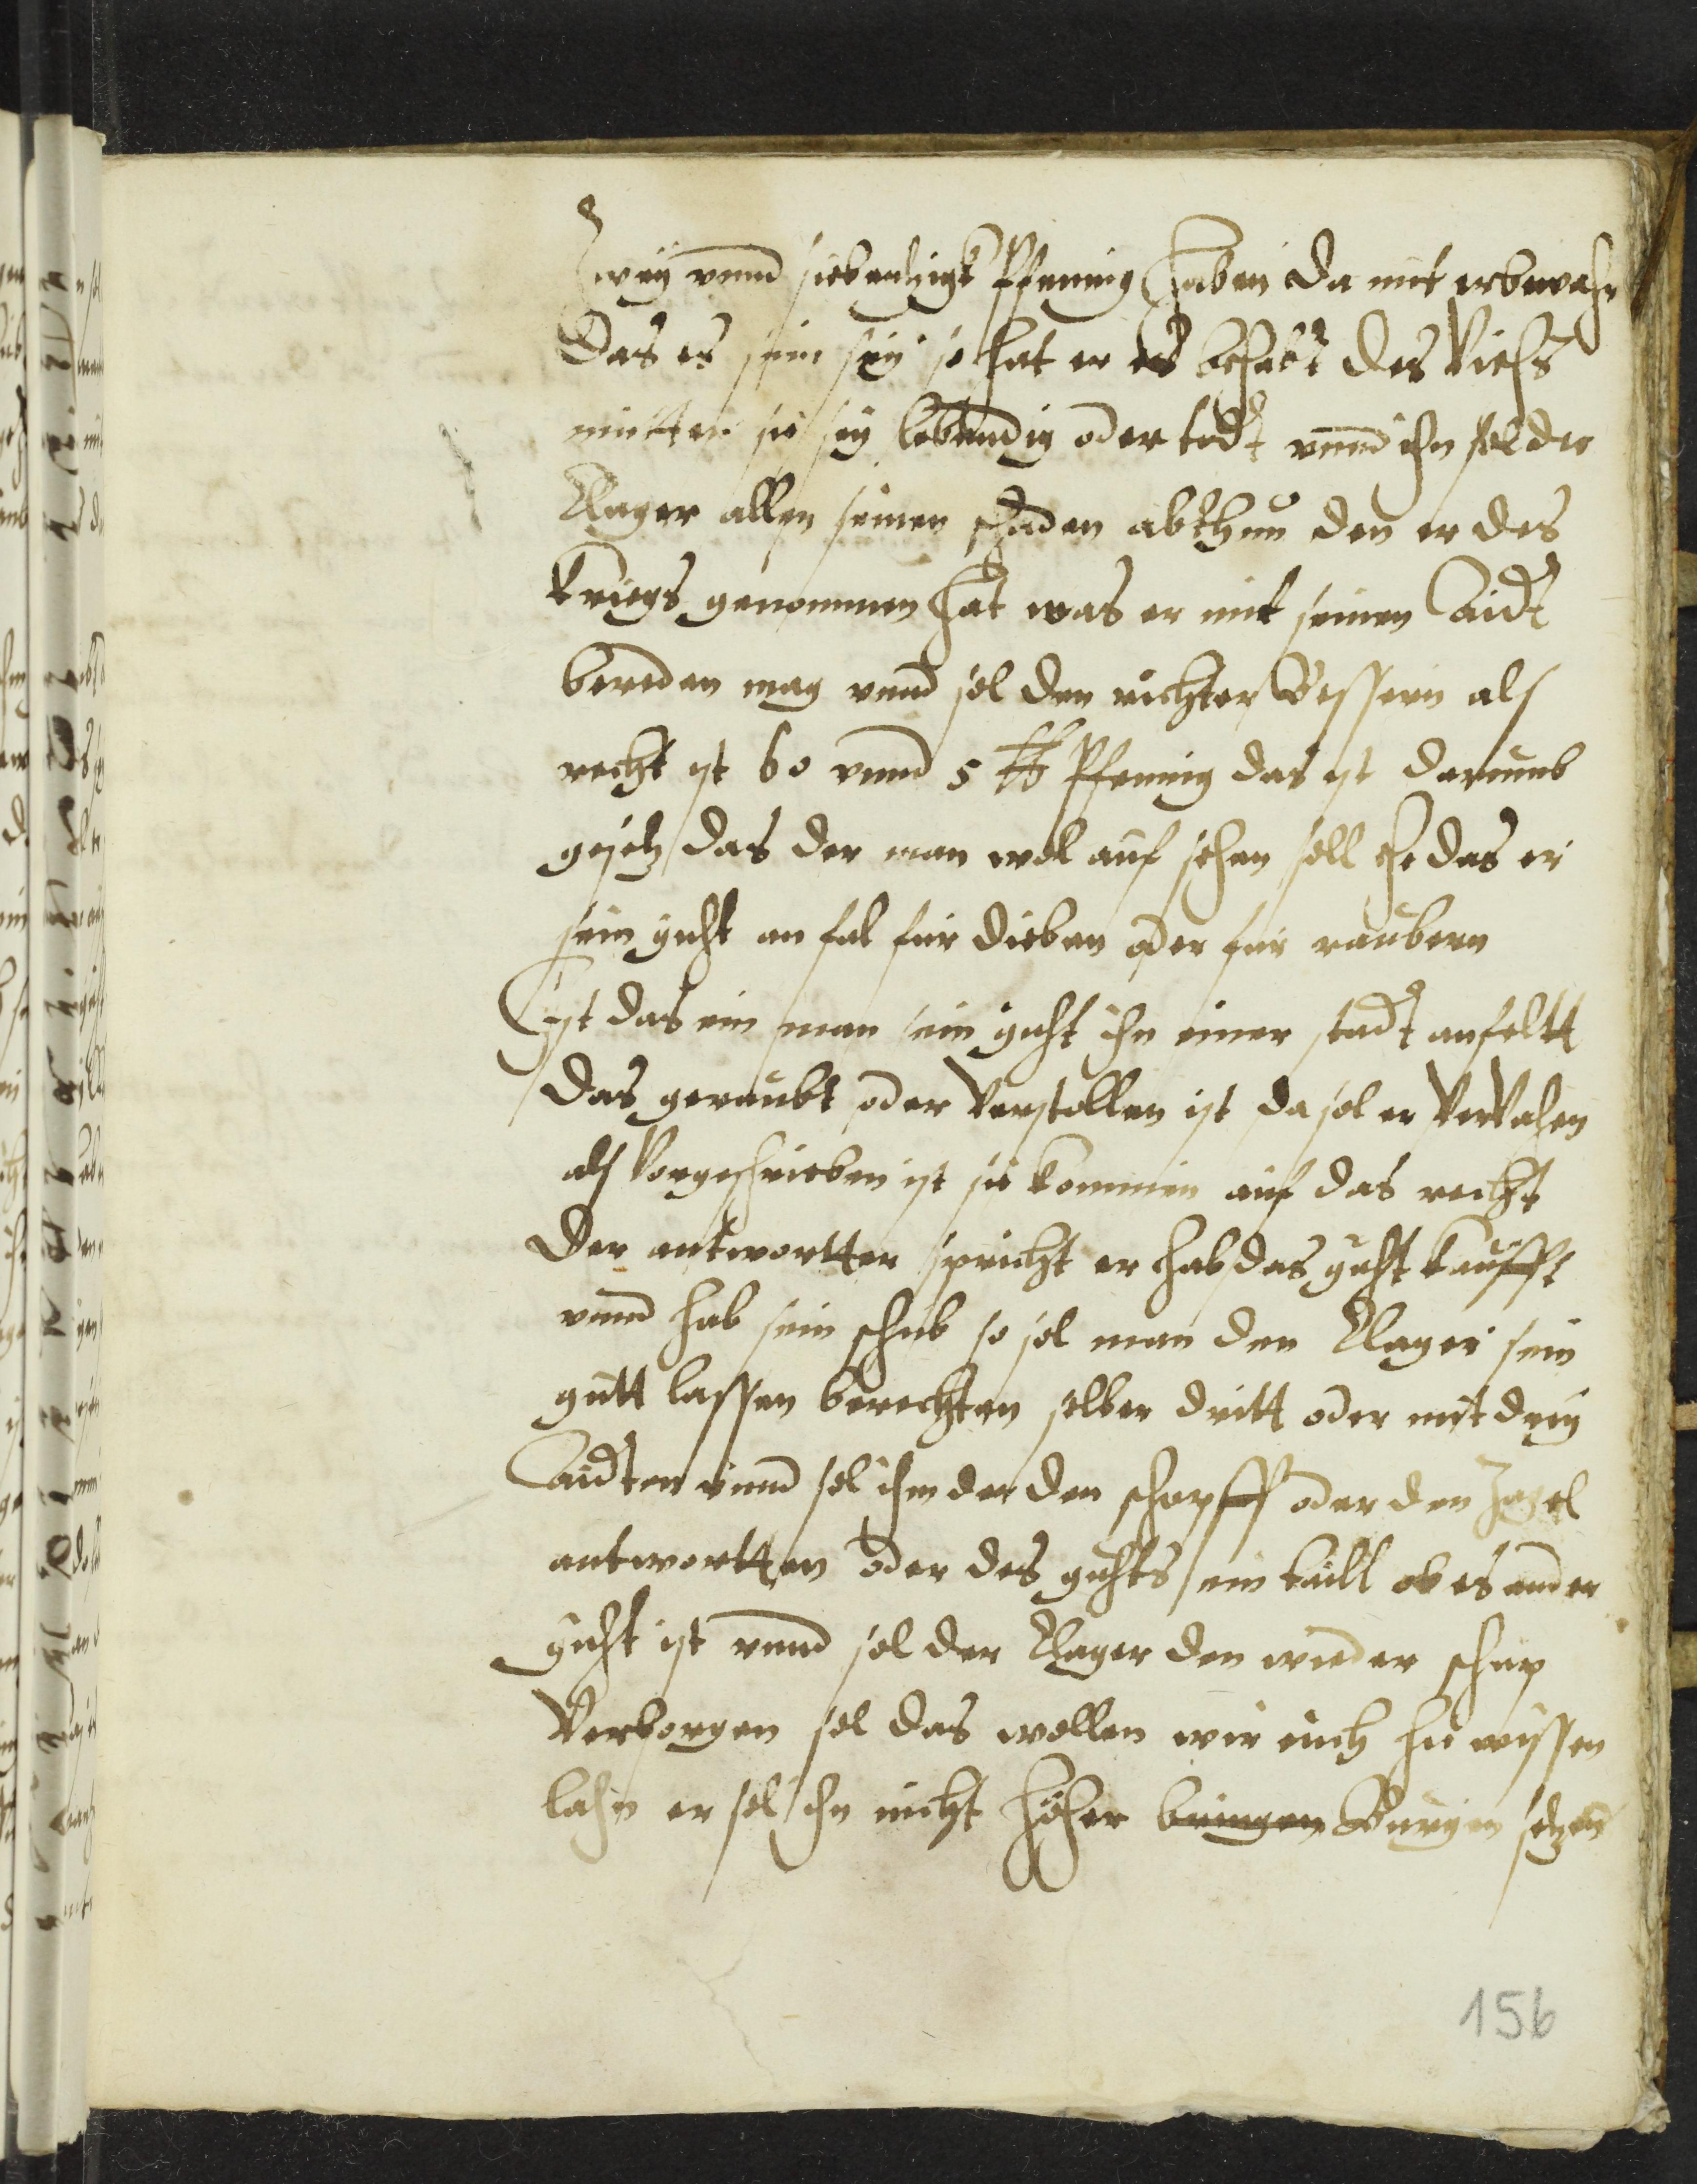 Zwey vnnd siebentzigk Pfennig haben da mit erbewahr
Das es sein sey so hat er es behabt des Viehs
mutter sie sey lebendig oder todt vnnd ihn sol der
Klager allen seinen schaden abthun den er des
kriegs genommen hat was er mit seinen Eidt
bereden mag vnnd sol den richter Bessern als
recht ist 60 vnnd 5 ℔ Pfennig das ist darumb
gesetz das der man wol auf sehen soll Ehe das er
sein guht an fal fur dieben oder fur raubern
Ist das ein man sein guht ihn einer stadt anfeltt
das geraubt oder Verstollen ist da sol er
als Vorgeschrieben ist sie kommen auf das recht
der antwortter spricht er hab das guht kaufft
vnnd hab sein schub so sol man den Klager sein
gutt lassen berechten selber dritt oder mit drey
Eidten vnnd sol ihm der den schopff oder den Zagel
antwortten oder des guhts ein taill ob es ander
guht ist vnnd sol der Klager den wieder schup
Verborgen sol das wollen wir euch hie wissen
lahn er sol ihn nicht höher bringen Burgen setzen
156